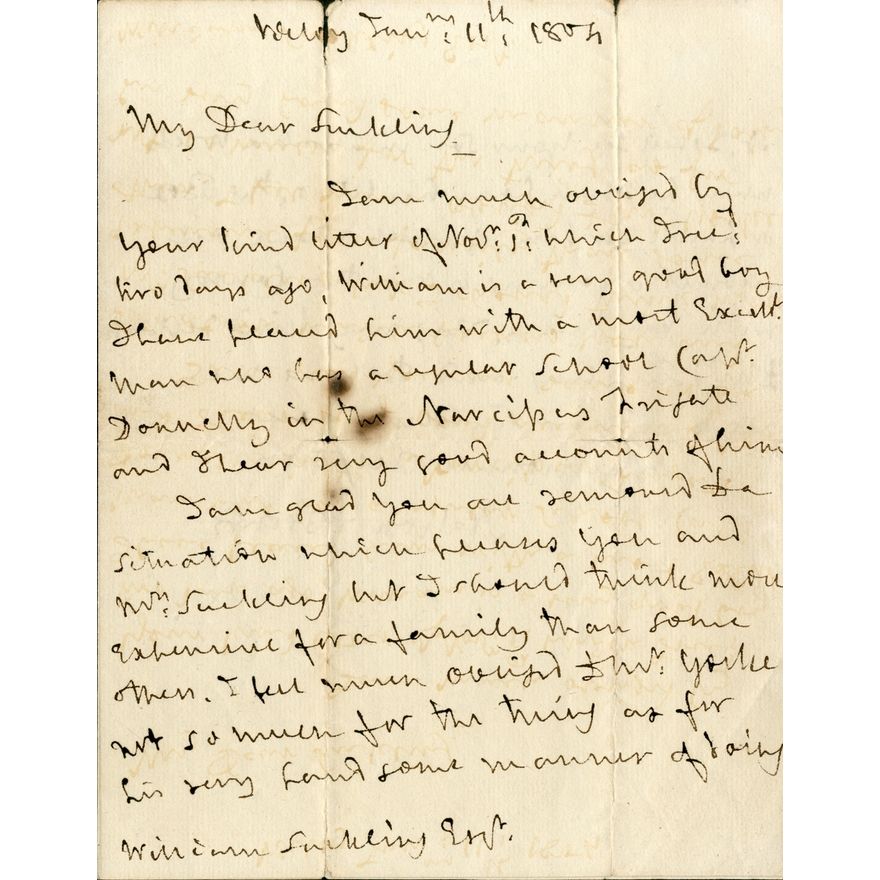 Victory Janry: 11th: 1804
My Dear Suckling,
I am much obliged by
your kind letter of Novr: 1st: which I recd:
two days ago, William is a very good boy
I have placed him with a most Excellt:
Man who has a regular School Capt:
Donnelly in the Narcissus Frigate
and I hear very good accounts of him
I am glad you are removed to a
situation which pleases you and
Mrs: Suckling but I should think more
Expensive for a family than some
others. I feel much obliged to Mr: Yorke
not so much for the thing as for
his very handsome manner of doing
William Suckling Esqr: